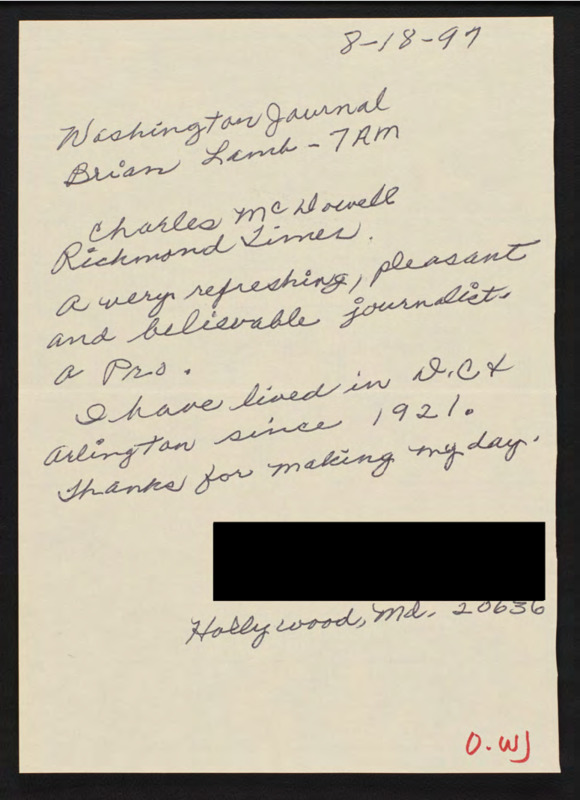 8-18-97
Washington Journal
Brian Lamb - 7 AM
Charles McDowell
Richmond Times.
A very refreshing, pleasant
and believable journalist.
a Pro.
I have lived in D.C &
Arlington since 1921.
Thanks for making my day.
Hollywood, Md. 20636
O.WJ